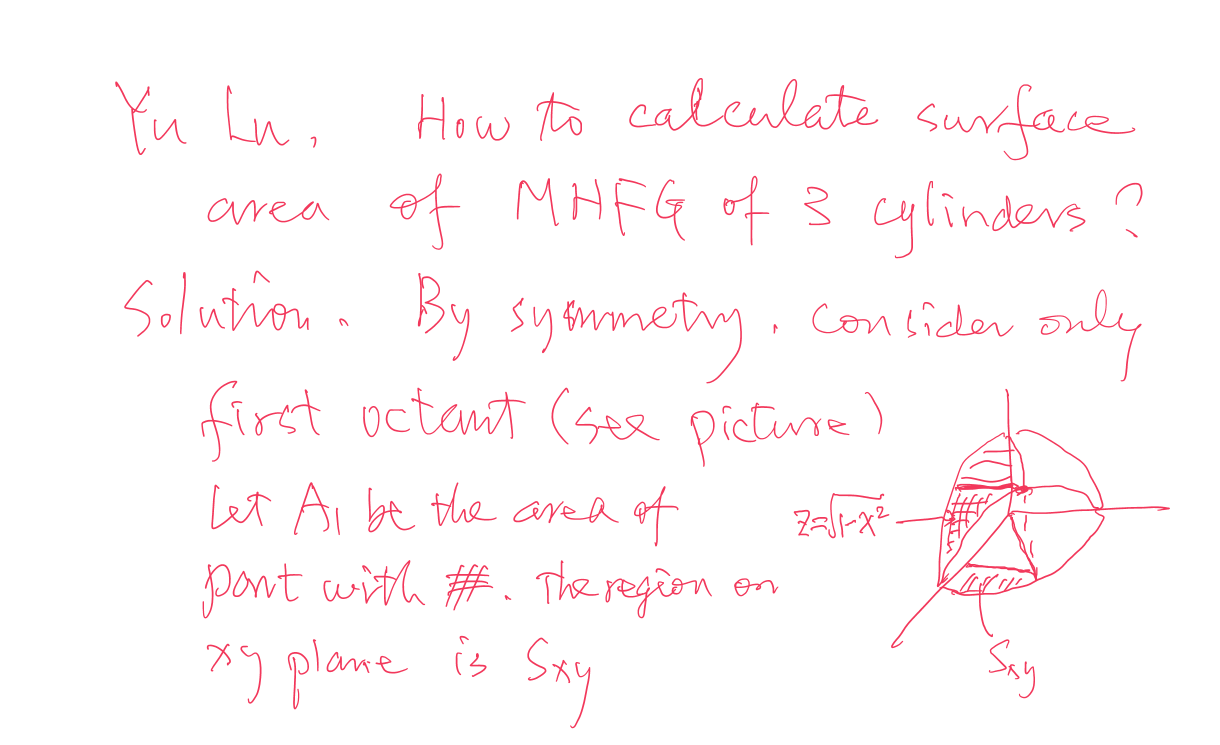 Yu Lu, How to calculate surface
area of MHFG of 3 cylinders?
Solution. By symmetry, consider only
first octant (see picture)
Let A₁ be the area of
part with #. The region on
xy plane is Sxy
z=√1-x²
Sxy